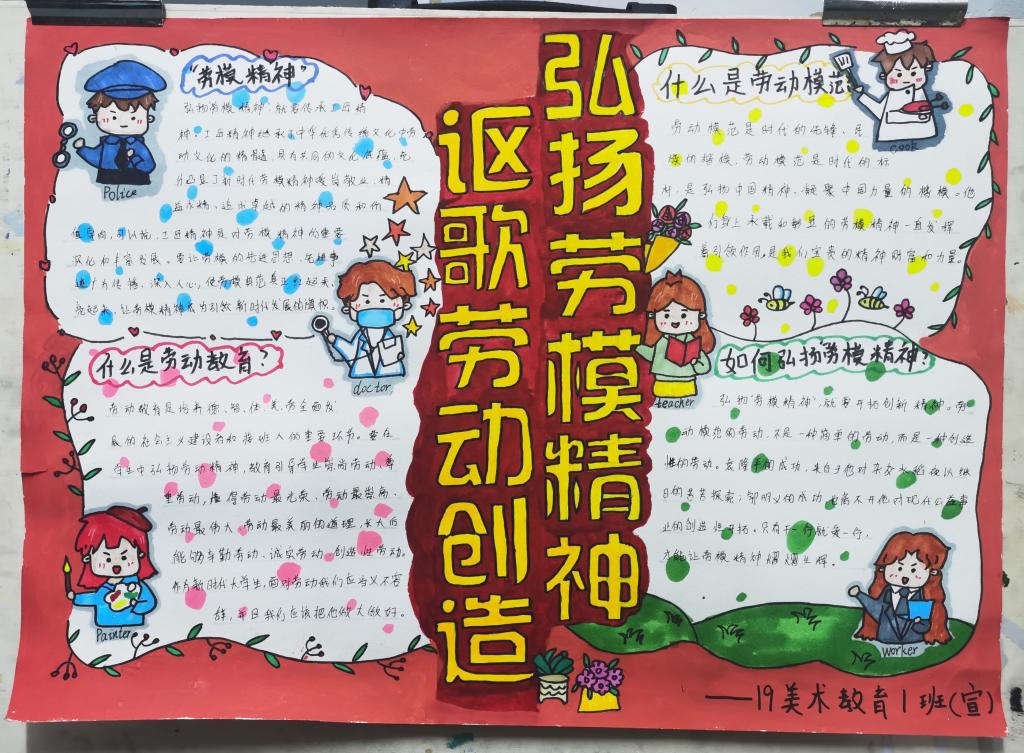 弘扬劳模精神
讴歌劳动创造
“劳模精神”
弘扬劳模精神,就要传承工匠精
神,工匠精神继承了中华优秀传统文化中劳
动文化的精髓,具有共同的文化底蕴,充
分凸显了新时代劳模精神爱岗敬业、精
益求精、追求卓越的精神品质和价
值导向,可以说,工匠精神是对劳模精神的重要
深化和丰富发展。要让劳模的先进思想、先进事
迹广为传播、深入人心,使劳模典范真正红起来、
亮起来,让劳模精神成为引领新时代发展的旗帜。
Police
doctor
什么是劳动教育?
劳动教育是培养德、智、体、美、劳全面发
展的社会主义建设者和接班人的重要环节。要在
学生中弘扬劳动精神,教育引导学生崇尚劳动、尊
重劳动,懂得劳动最光荣、劳动最崇高、
劳动最伟大、劳动最美丽的道理,长大后
能够辛勤劳动、诚实劳动、创造性劳动。
作为新时代大学生,面对劳动我们应当义不容
辞,并且我们应该把他做大做好。
Painter
什么是劳动模范
劳动模范是时代的先锋、民
族的楷模,劳动模范是时代的标
杆,是弘扬中国精神、凝聚中国力量的楷模。他
们身上承载和彰显的劳模精神一直发挥
着引领作用,是我们宝贵的精神财富和力量。
cook
teacher
如何弘扬“劳模精神”?
弘扬“劳模精神”,就要开拓创新精神。劳
动模范的劳动,不是一种简单的劳动,而是一种创造
性的劳动。袁隆平的成功,来自于他对杂交水稻夜以继
日的苦苦探索;邹明义的成功也离不开他对现代公益事
业的创造性开拓。只有干一行就爱一行,
才能让劳模精神熠熠生辉。
worker
——19美术教育1班(宣)